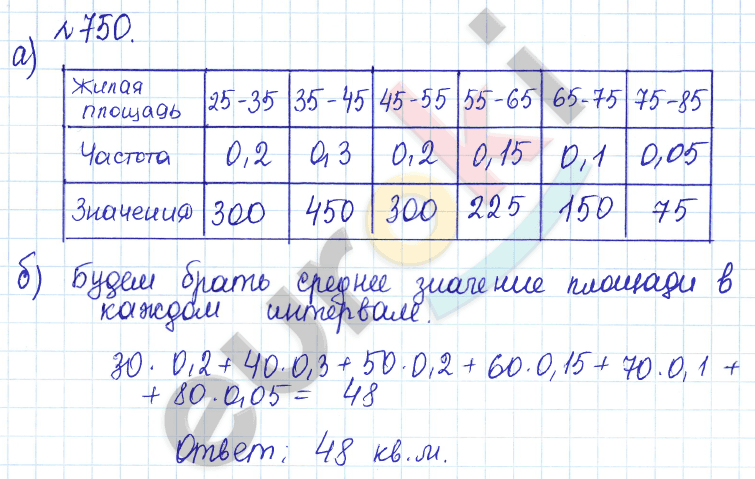 №750.
а)
Жилая площадь 25-35 35-45 45-55 55-65 65-75 75-85
Частота 0,2 0,3 0,2 0,15 0,1 0,05
Значения 300 450 300 225 150 75
б) Будем брать среднее значение площади в
каждом интервале.
30· 0,2 + 40·0,3 + 50·0,2 + 60·0,15 + 70·0,1 +
+ 80·0,05 = 48
Ответ: 48 кв.м.
euroki